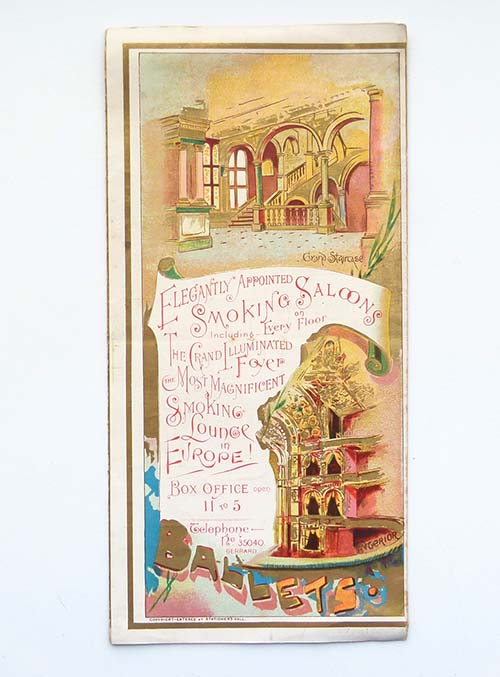 Grand Staircase
ELEGANTLY APPOINTED
SMOKING SALOONS
on
Including Every Floor
THE GRAND ILLUMINATED
FOYER
THE MOST MAGNIFICENT
SMOKING
LOUNGE
in
EUROPE!
BOX OFFICE open
11 TO 5
Telephone—
No 35040.
GERRARD
INTERIOR
BALLETS
COPYRIGHT-ENTERED AT STATIONERS HALL.